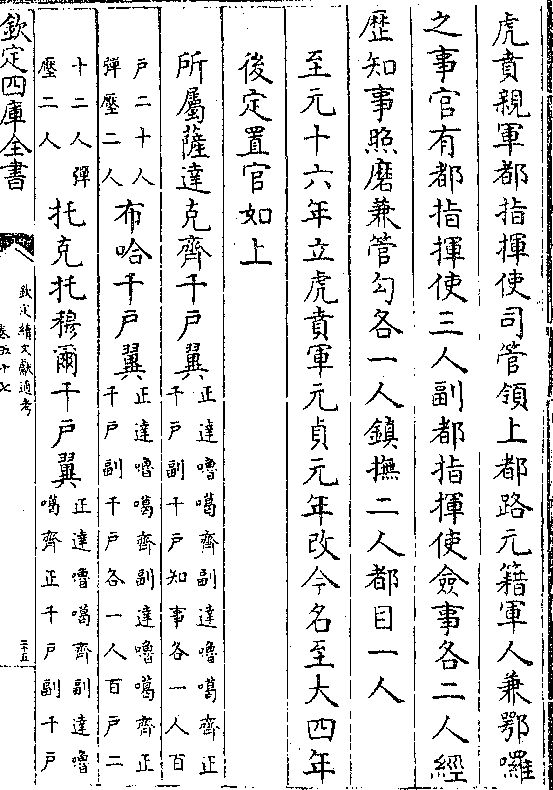 虎賁親軍都指揮使司管領上都路元籍軍人兼鄂囉
之事官有都指揮使三人副都指揮使僉事各二人經
歴知事照磨兼管勾各一人鎮撫二人都目一人
至元十六年立虎賁軍元貞元年改今名至大四年
後定置官如上
所屬薩達克齊千戸翼正達嚕噶齊副達嚕噶齊正
千戸副千戸知事各一人百
戸二十人
彈壓二人布哈千戸翼正達嚕噶齊副達嚕噶齊正
千戸副千戸各一人百戸二
十二人彈
壓二人托克托穆爾千戸翼正達嚕噶齊副達嚕
噶齊正千戸副千戸
欽定四庫全書
欽定續文獻通考
卷五十七